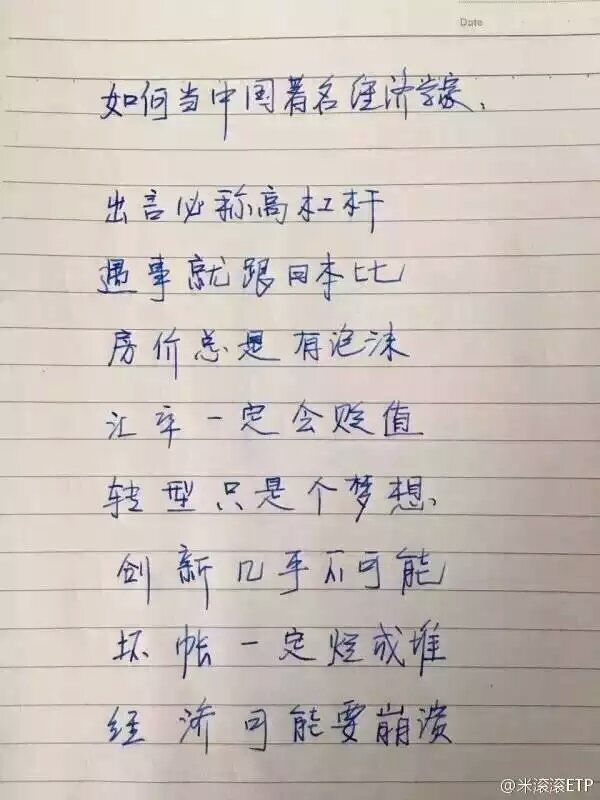 Date
如何当中国著名经济学家、
出言必称高杠杆
遇事就跟日本比
房价总是有泡沫
汇率一定会贬值
转型只是个梦想、
创新几乎不可能
坏帐一定烂成堆
经济可能要崩溃
@米滚滚ETP